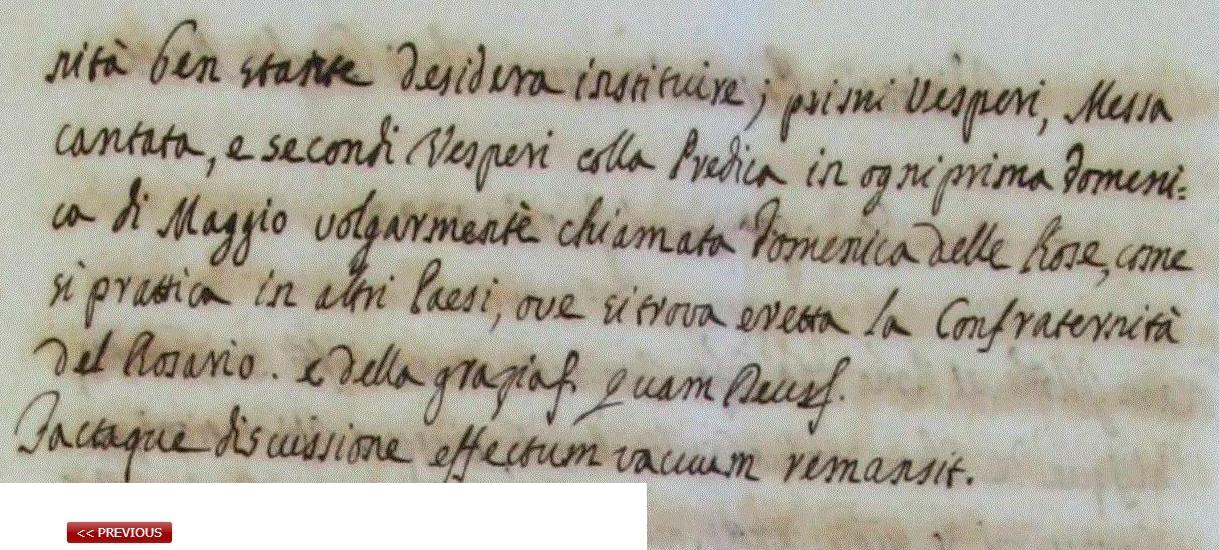 nità ben stante desidera instituire; primi Vesperi, Messa
cantata, e secondi Vesperi colla Predica in ogni prima Domeni=
ca di Maggio volgarmente chiamata Domenica delle Rose, come
si prattica in altri Paesi, ove si trova eretta la Confraternità
del Rosario. e della grazia. Quam Deus.
Factaque discussione effectum vacuum remansit.
<< PREVIOUS